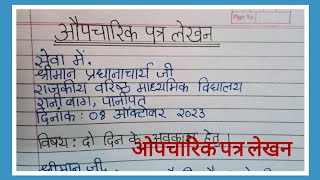 औपचारिक पत्र लेखन
सेवा में,
श्रीमान प्रधानाचार्य जी
राजकीय वरिष्ठ माध्यमिक विद्यालय
रानी बाग, पानीपत
दिनांक: 08 अक्टोबर 2023
विषय: दो दिन के अवकाश हेतु।
ओपचारिक पत्र लेखन
श्रीमान जी,